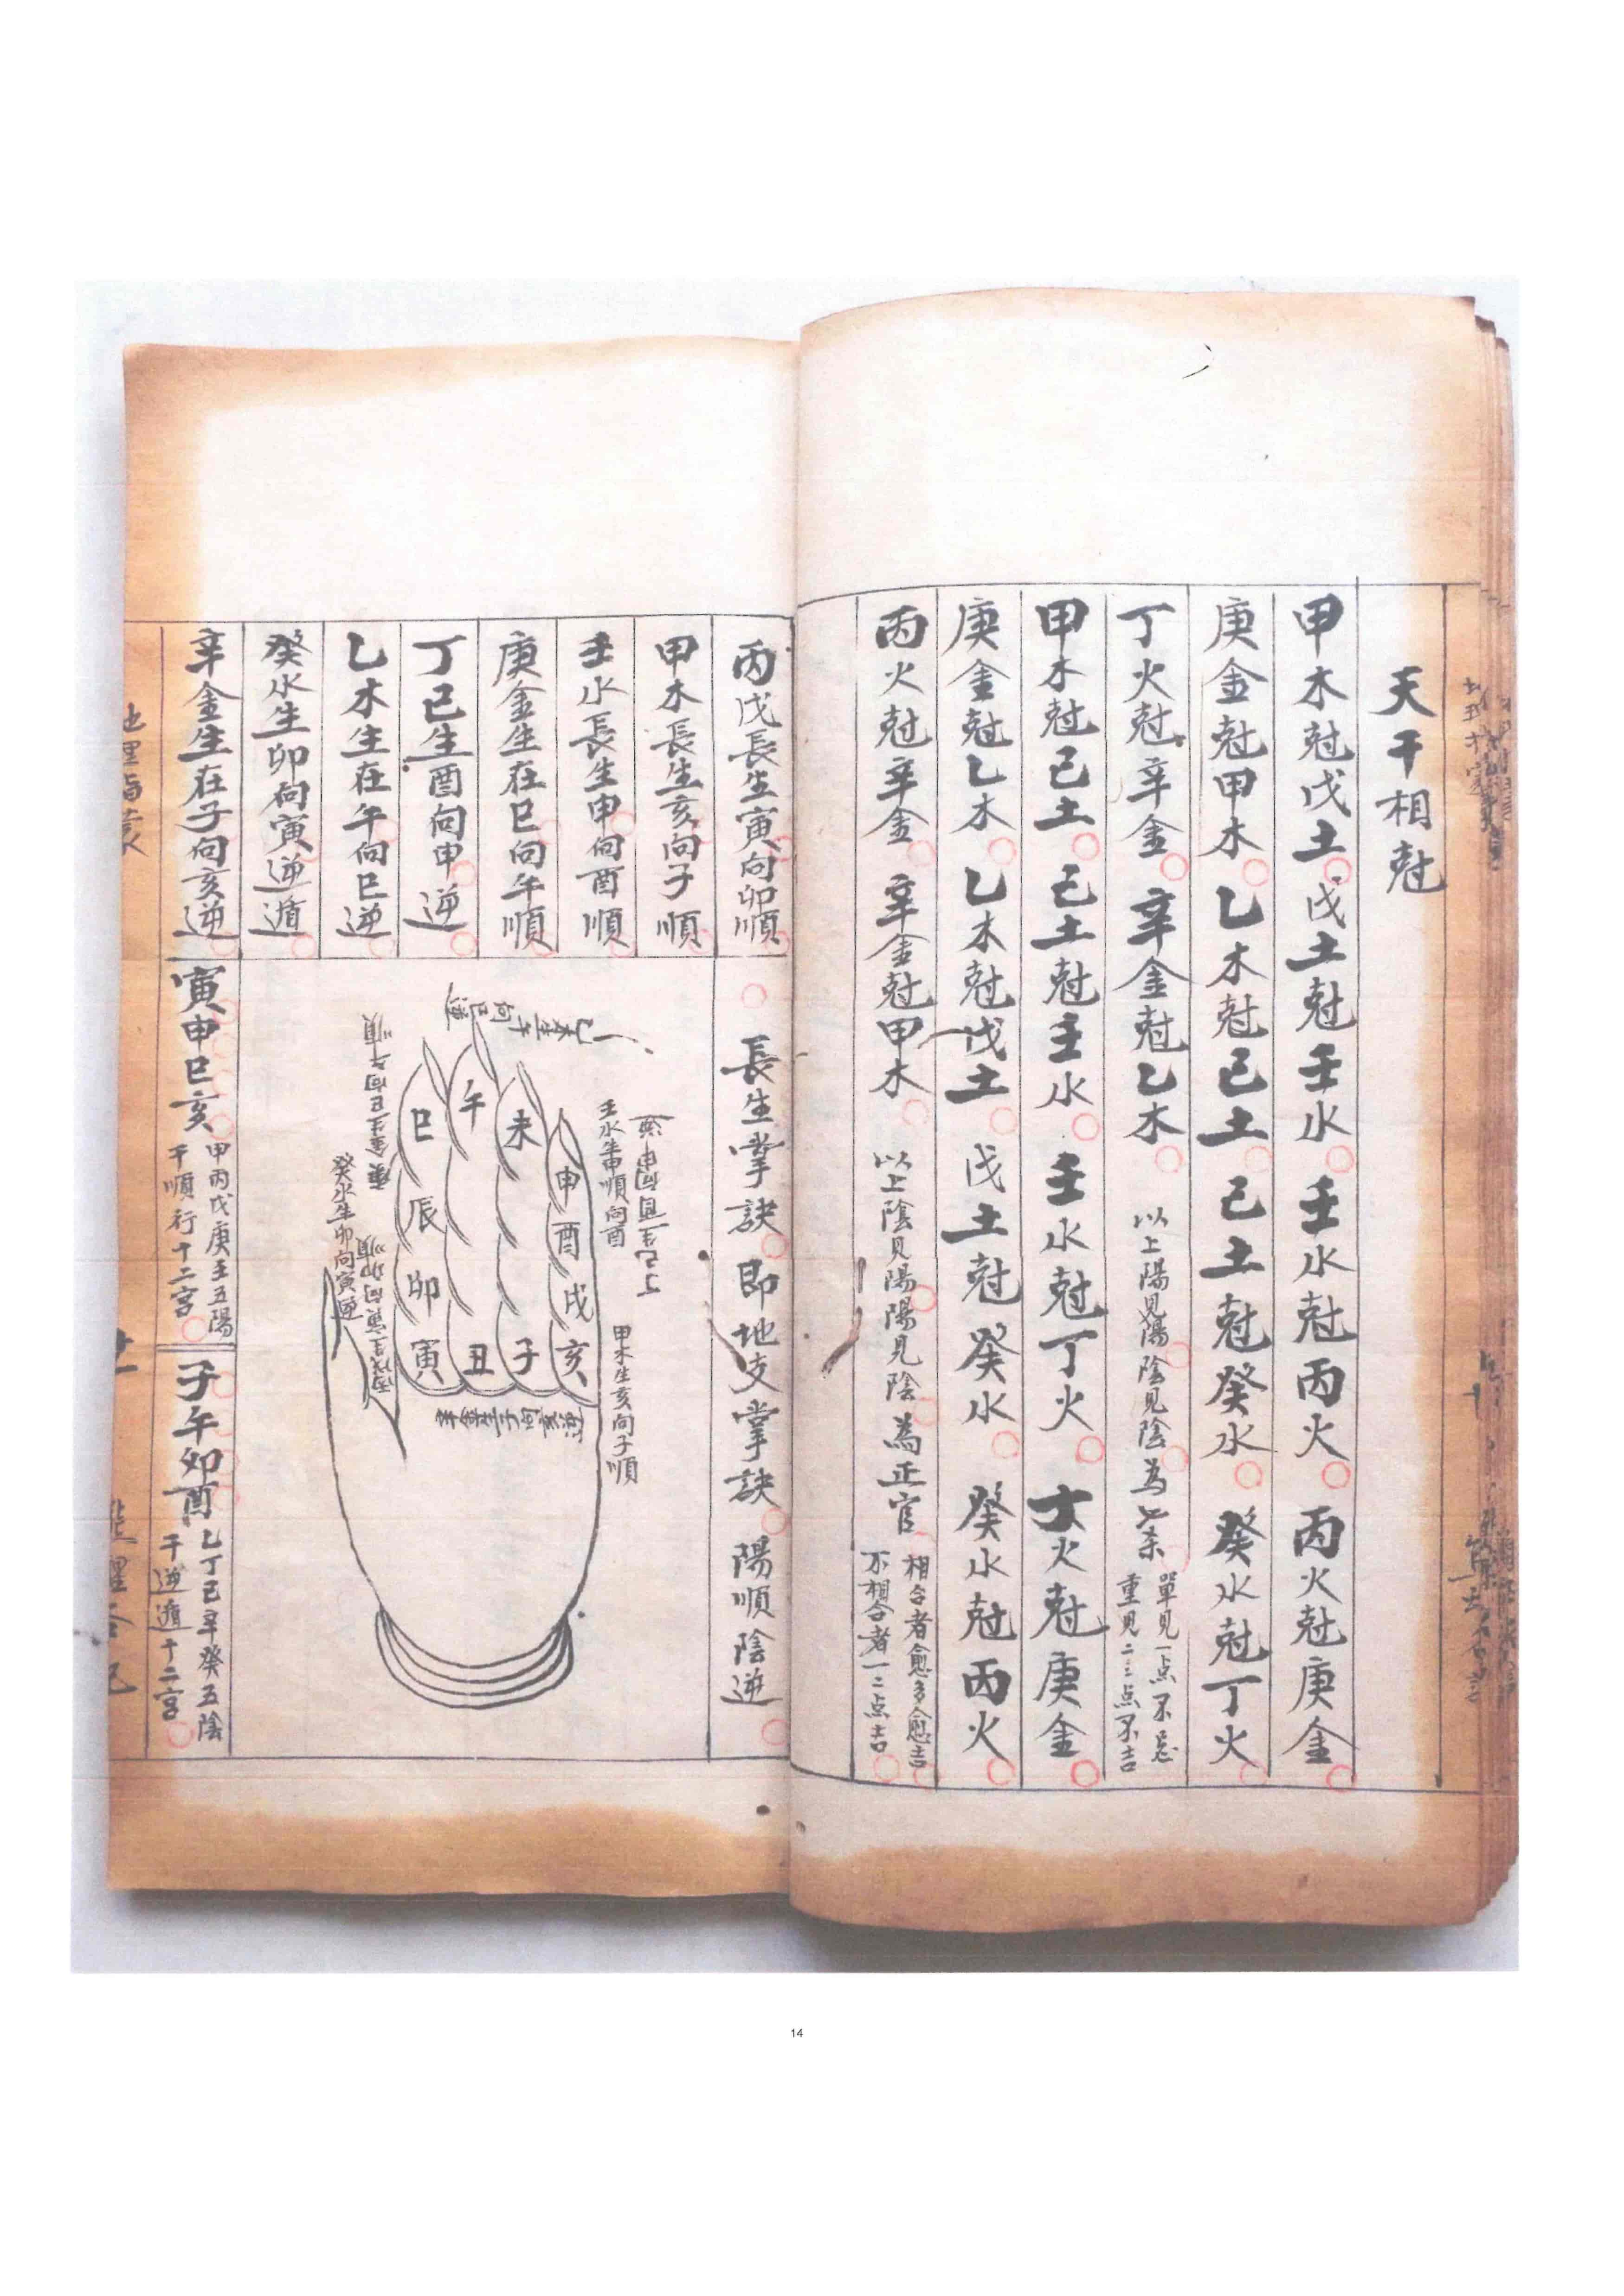 天干相尅
甲木尅戊土 戊土尅壬水 壬水尅丙火 丙火尅庚金
庚金尅甲木 乙木尅己土 己土尅癸水 癸水尅丁火
丁火尅辛金 辛金尅乙木 以上陽見陽陰見陰為七杀 單見一点不忌
重見二三点不吉
甲木尅己土 己土尅壬水 壬水尅丁火 丁火尅庚金
庚金尅乙木 乙木尅戊土 戊土尅癸水 癸水尅丙火
丙火尅辛金 辛金尅甲木 以上陰見陽陽見陰為正官 相合者愈多愈吉
不相合者一二点吉
丙戊長生寅向卯順
甲木長生亥向子順
壬水長生申向酉順
庚金生在巳向午順
丁己生酉向申逆
乙木生在午向巳逆
癸水生卯向寅逆遁
辛金生在子向亥逆
長生掌訣 即地支掌訣 陽順陰逆
壬水生申順向酉
甲木生亥向子順
乙木生午向巳逆
庚金生巳向午順
癸水生卯向寅逆
丙戊生寅向卯順
辛金生子向亥逆
巳 午 未 申
辰 酉
卯 戌
寅 丑 子 亥
寅申巳亥 甲丙戊庚壬五陽
干順行十二宮
子午卯酉 乙丁己辛癸五陰
干逆遁十二宮
14